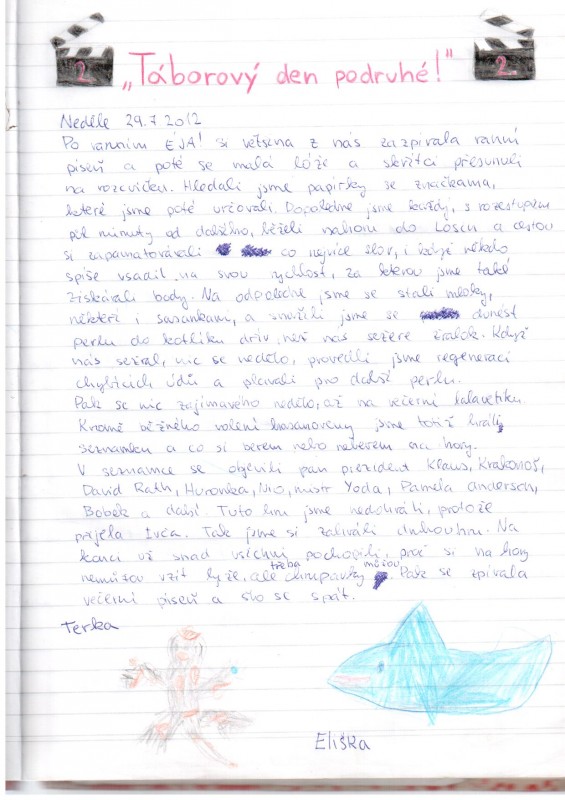 2. „Táborový den podruhé!" 2.
Neděle 29.7 2012
Po ranním ÉJA! si většina z nás zazpívala ranní
píseň a poté se malá lóže a skřítci přesunuli
na rozcvičku. Hledali jsme papírky se značkama,
které jsme poté určovali. Dopoledne jsme každý, s rozestupem
půl minuty od dalšího, běželi nahoru do Lösch a cestou
si zapamatovávali co nejvíce slov, i když někdo
spíše vsadil na svou rychlost, za kterou jsme také
získávali body. Na odpoledne jsme se stali mloky,
někteří i sasankami, a snažili jsme se donést
perlu do kotlíku dřív, než nás sežere žralok. Když
nás sežral, nic se nedělo, provedli jsme regeneraci
chybějících údů a plavali pro další perlu.
Pak se nic zajímavého nedělo, až na večerní
Kromě běžného volení jsme totiž hráli
seznamku a co si berem nebo neberem na hory.
V seznamce se objevili pan prezident Klaus, Krakonoš,
David Rath, Hurvínka, Nio, mistr Yoda, Pamela Anderson,
Bobek a další. Tuto hru jsme nedohráli, protože
přijela Ivča. Tak jsme si zahráli druhou hru. Na
konci už snad všichni pochopili, proč si na hory
nemůžou vzít lyže, ale třeba chrupavky můžou. Pak se zpívala
večerní píseň a šlo se spát.
Terka
Eliška